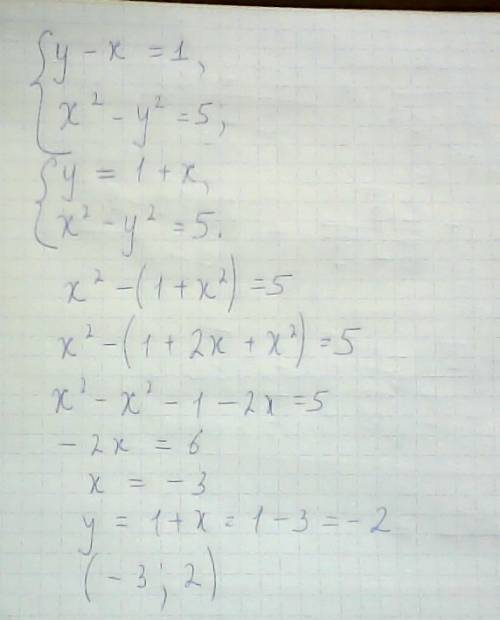 y - x = 1,
x² - y² = 5;
y = 1 + x,
x² - y² = 5.
x² - (1 + x²) = 5
x² - (1 + 2x + x²) = 5
x² - x² - 1 - 2x = 5
- 2x = 6
x = - 3
y = 1 + x = 1 - 3 = - 2
(- 3; 2)